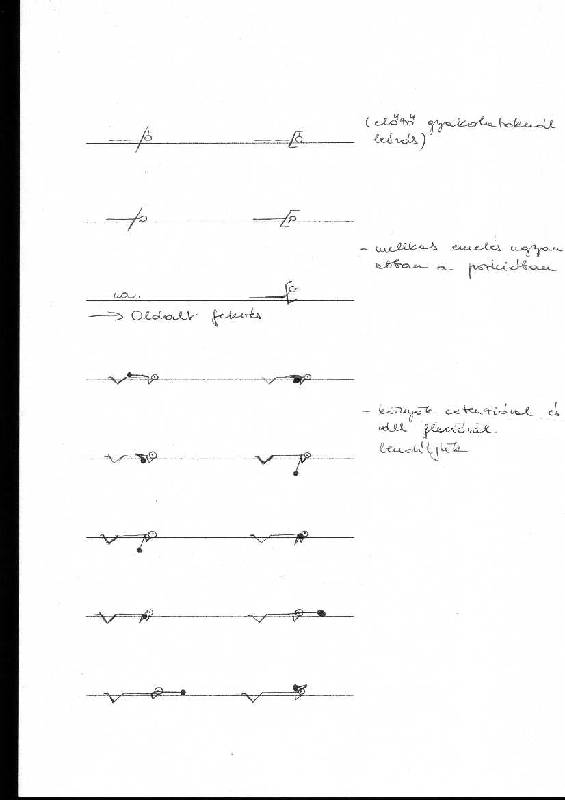 (előző gyakorlatoknál
leírás)
- mellkas emelés ugyan
abban a pozícióban
u.a.
→ Oldalt fekvés
- könyök extenzióval és
váll flexióval
lendítjük